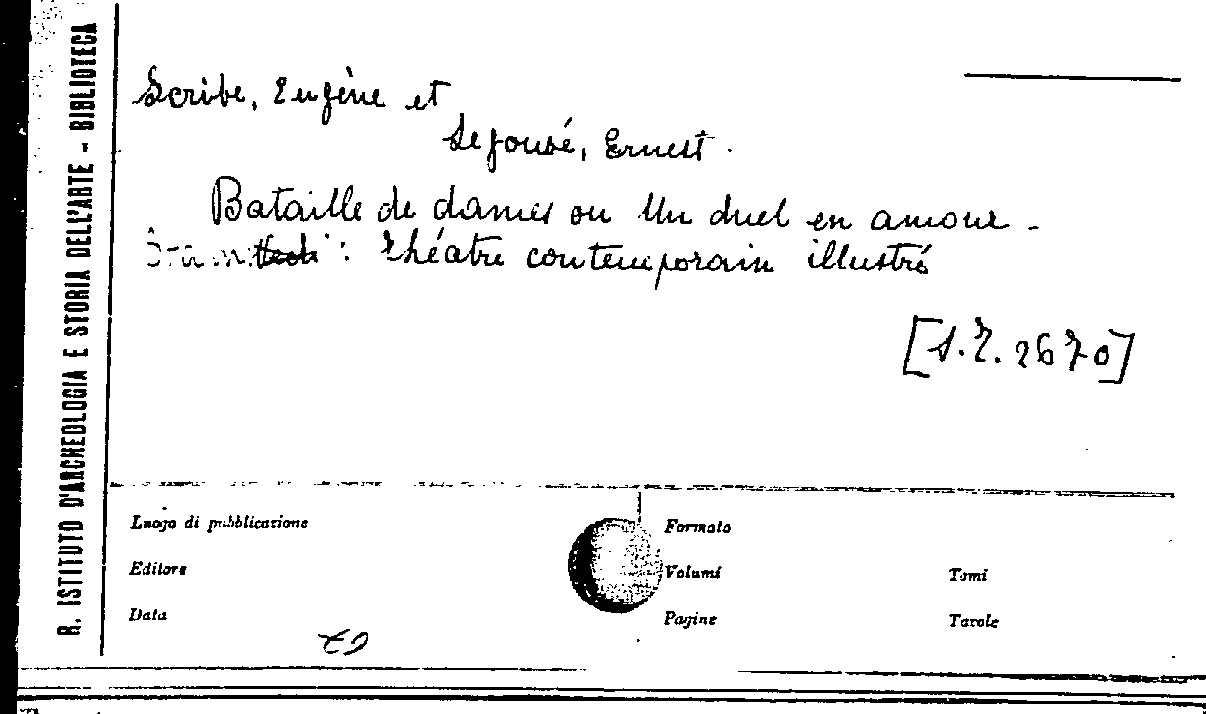 R. ISTITUTO D'ARCHEOLOGIA E STORIA DELL'ARTE - BIBLIOTECA
Scribe, Eugène et
Legouvé, Ernest.
Bataille de dames ou Un duel en amour -
: théatre contemporain illustré
[S.T. 2670]
Luogo di pubblicazione
Editore
Data
Formato
Volumi
Tomi
Pagine
Tavole